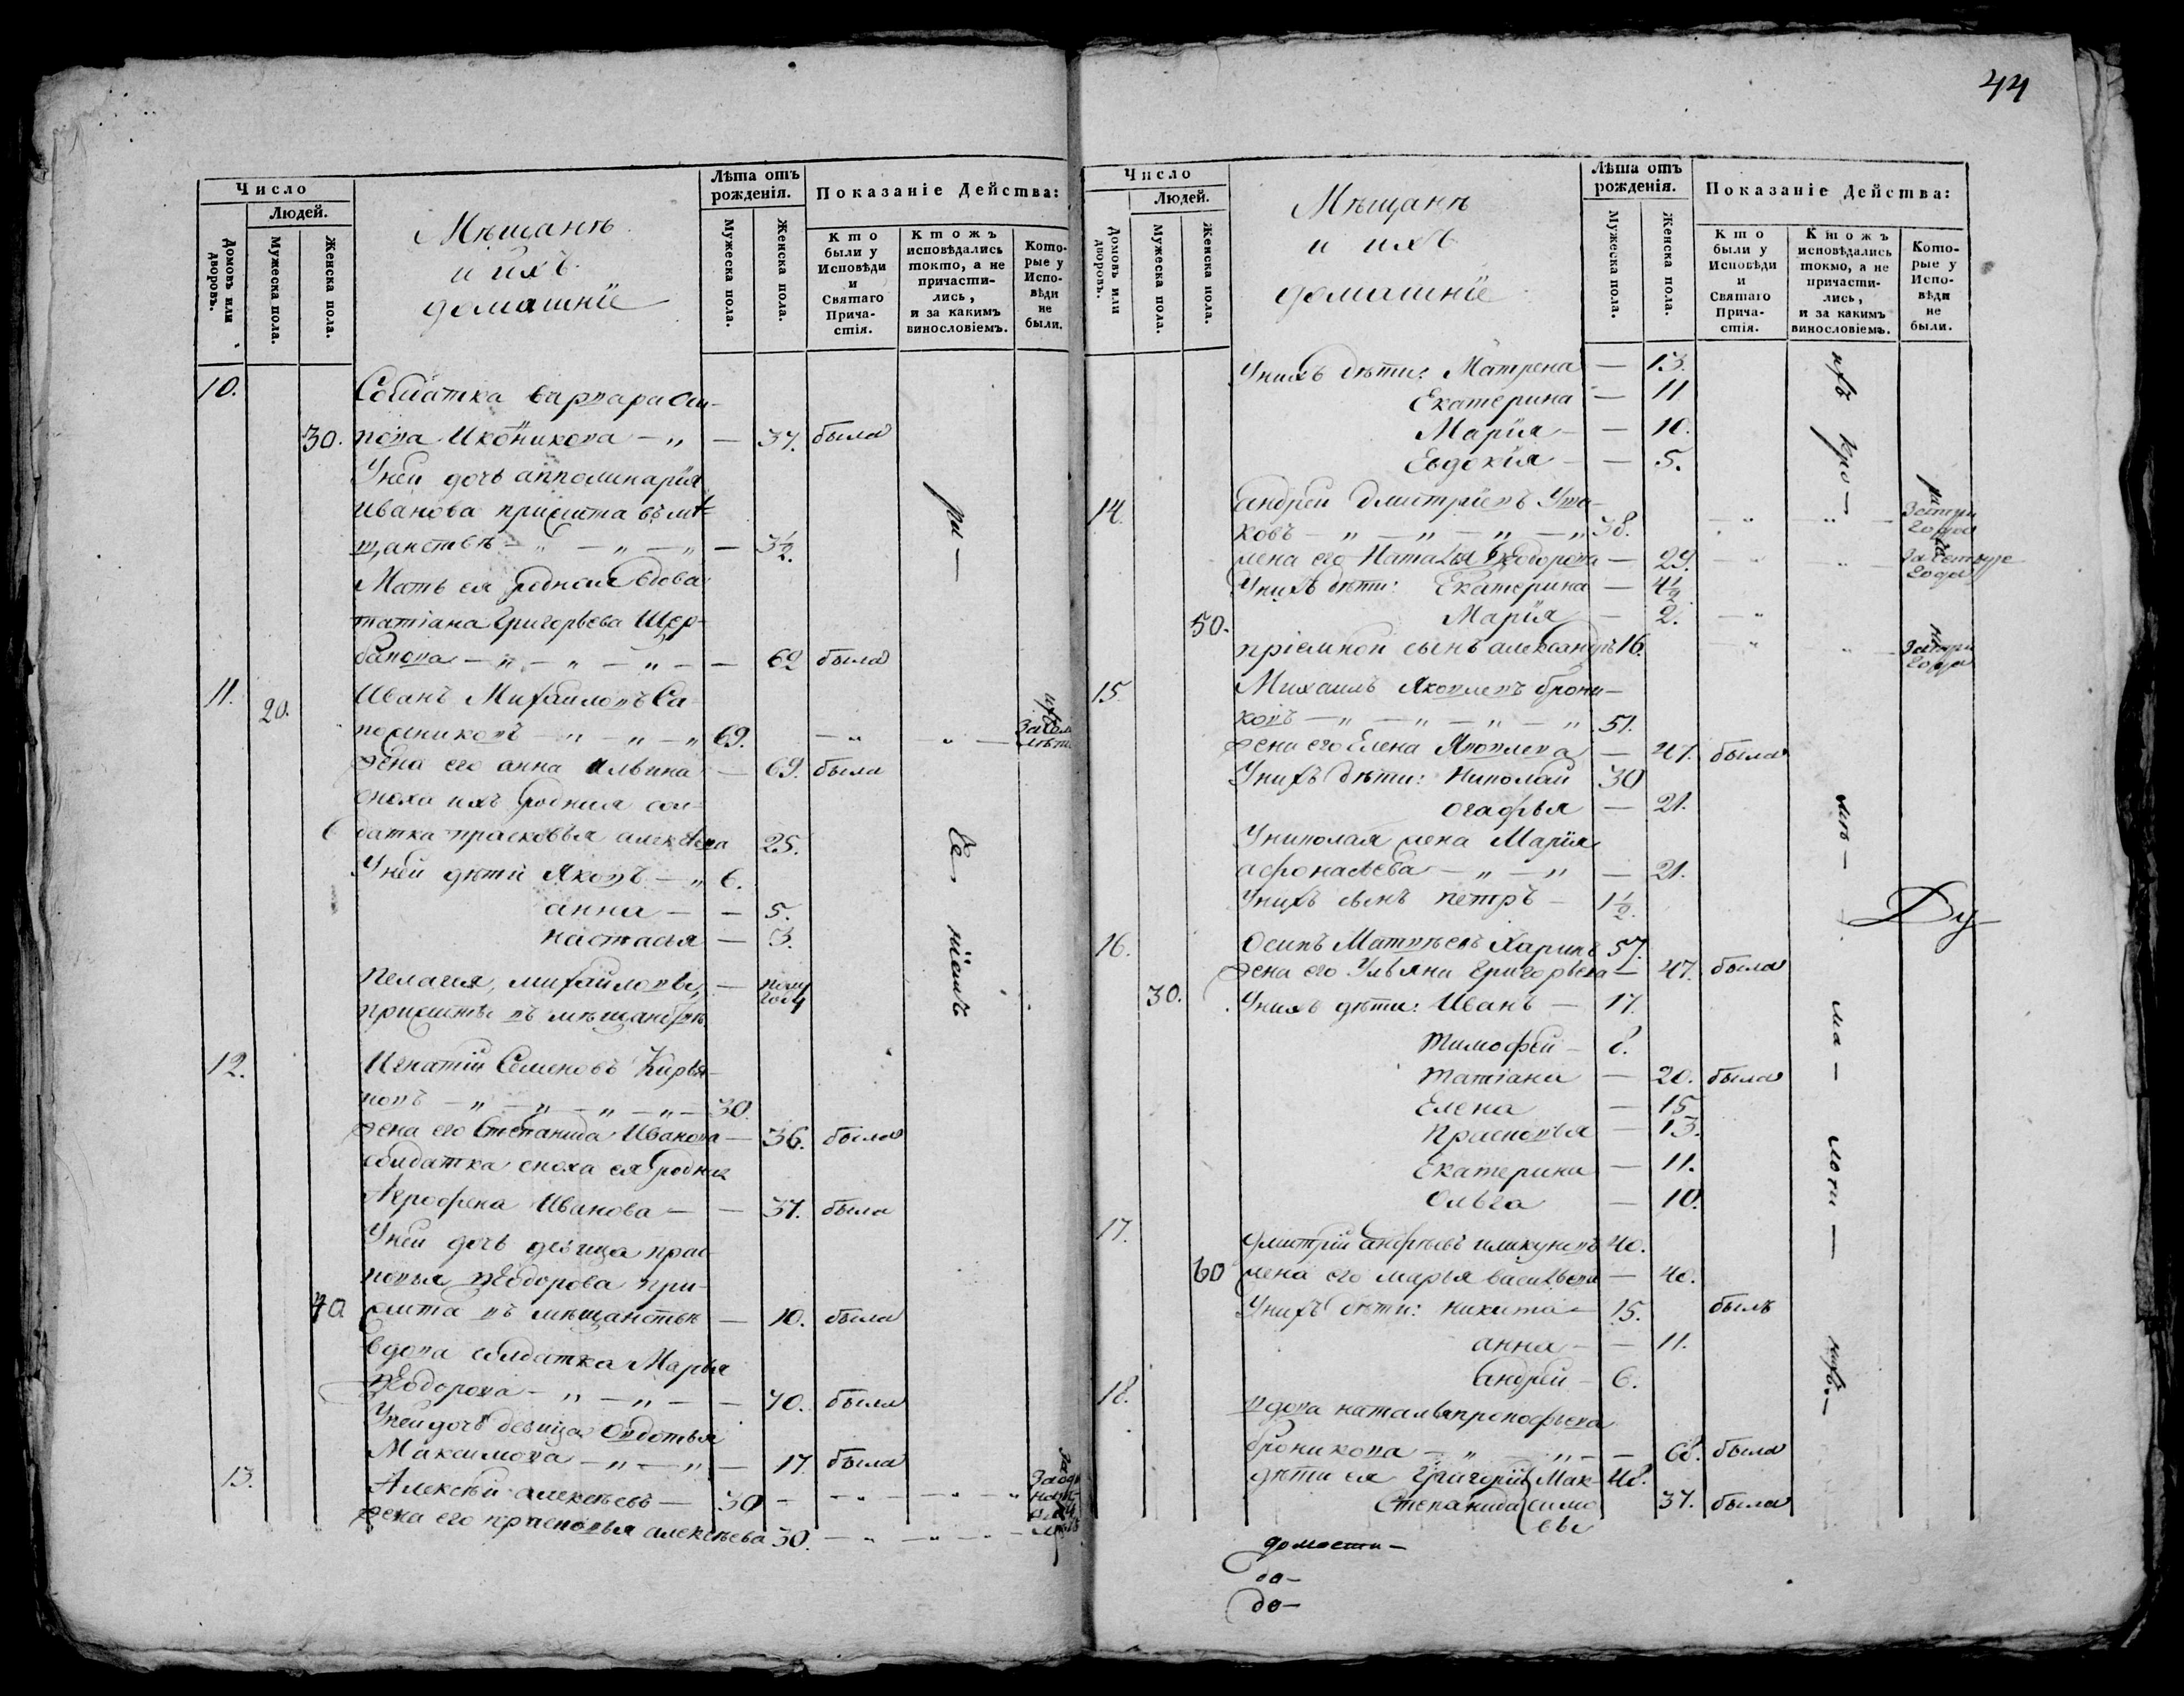 44
Число
Людей.
Домовъ или дворовъ.
Мужеска пола.
Женска пола.
Мѣщанѣ
и ихъ
домашніе
Лѣта отъ рожденія.
Мужеска пола.
Женска пола.
Показаніе Действа:
Кто были у Исповѣди и Святаго Причастія.
Ктожъ исповѣдались токмо, а не причастились, и за какимъ винословіемъ.
Которые у Исповѣди не были.
10. Солдатка варвара Оси-
30. пова Иконникова — 37. была
Уней дочь апполинария
иванова приписита въ мѣ-
щанствѣ — 3½.
Мать ея родная вдова
татіана Григорьева Щер-
бакова — 62 была
11. 20. Иванъ Михаиловъ Са-
пожниковъ — 69.
жена его анна ильина — 69. была
сноха ихъ родная сол-
датка прасковья алексеева 25.
Уней дѣти Яковъ — 6.
анна — 5.
настасья — 3.
Пелагия, михайловы, — полу году
приписаны въ мѣщанствѣ
12. Игнатій Семеновъ Кирья-
новъ — 30.
жена его Степанида Иванова — 36. была
солдатка сноха ея родная
Агрофена Иванова — 37. была
Уней дочь девица прас-
ковья Ѳеодорова при-
40 писита въ мѣщанствѣ — 10. была
вдова солдатка Марья
Ѳеодорова — 70. была
Уней дочь девица Овдотья
Максимова — 17. была
13. Алексѣй алексѣевъ — 30
жена его прасковья алексѣева 30.
ри —
че, ніемъ
Число
Людей.
Домовъ или дворовъ.
Мужеска пола.
Женска пола.
Мѣщанѣ
и ихъ
домашніе
Лѣта отъ рожденія.
Мужеска пола.
Женска пола.
Показаніе Действа:
Кто были у Исповѣди и Святаго Причастія.
Ктожъ исповѣдались токмо, а не причастились, и за какимъ винословіемъ.
Которые у Исповѣди не были.
Унихъ дѣти: Матрена — 13.
Екатерина — 11
Марія — 10.
Евдокія — 5.
14. Андреи Дмитріевъ Уша-
ковъ — 38.
жена его Наталья Ѳеодорова — 29. За четыре года
Унихъ дѣти: Екатерина — 4½
50. Марія — 2.
пріемной сынъ александръ 16. За три года
15. Михаилъ Яковлевъ брони-
ковъ — 51.
жена его Елена Яковлева — 47. была
Унихъ дѣти: Николай 30
огафья — 21.
Униколая жена Марія
афонасьева — 21.
Унихъ сынъ петръ — 1½.
16. Осипъ Матвѣевъ Харинъ 57.
жена его Ульяна Григорьева — 47. была
30. Унихъ дѣти: Иванъ — 17.
Тимофей — 8.
татіана — 20. была
Елена — 15
Прасковья — 13.
Екатерина — 11.
Ольга — 10.
17. Дмитрій анофрьевъ 40.
60 жена его марья васильева — 40.
Унихъ дѣти: никита — 15. былъ
анна — 11.
андрей — 6.
18. вдова наталья прокофьева
броникова — 68. была
дѣти ея Григорій Мак- 48.
Степанида симо 37. была
вы
Ду
мѣ —
ма —
лоти —
домости —
до —
до —